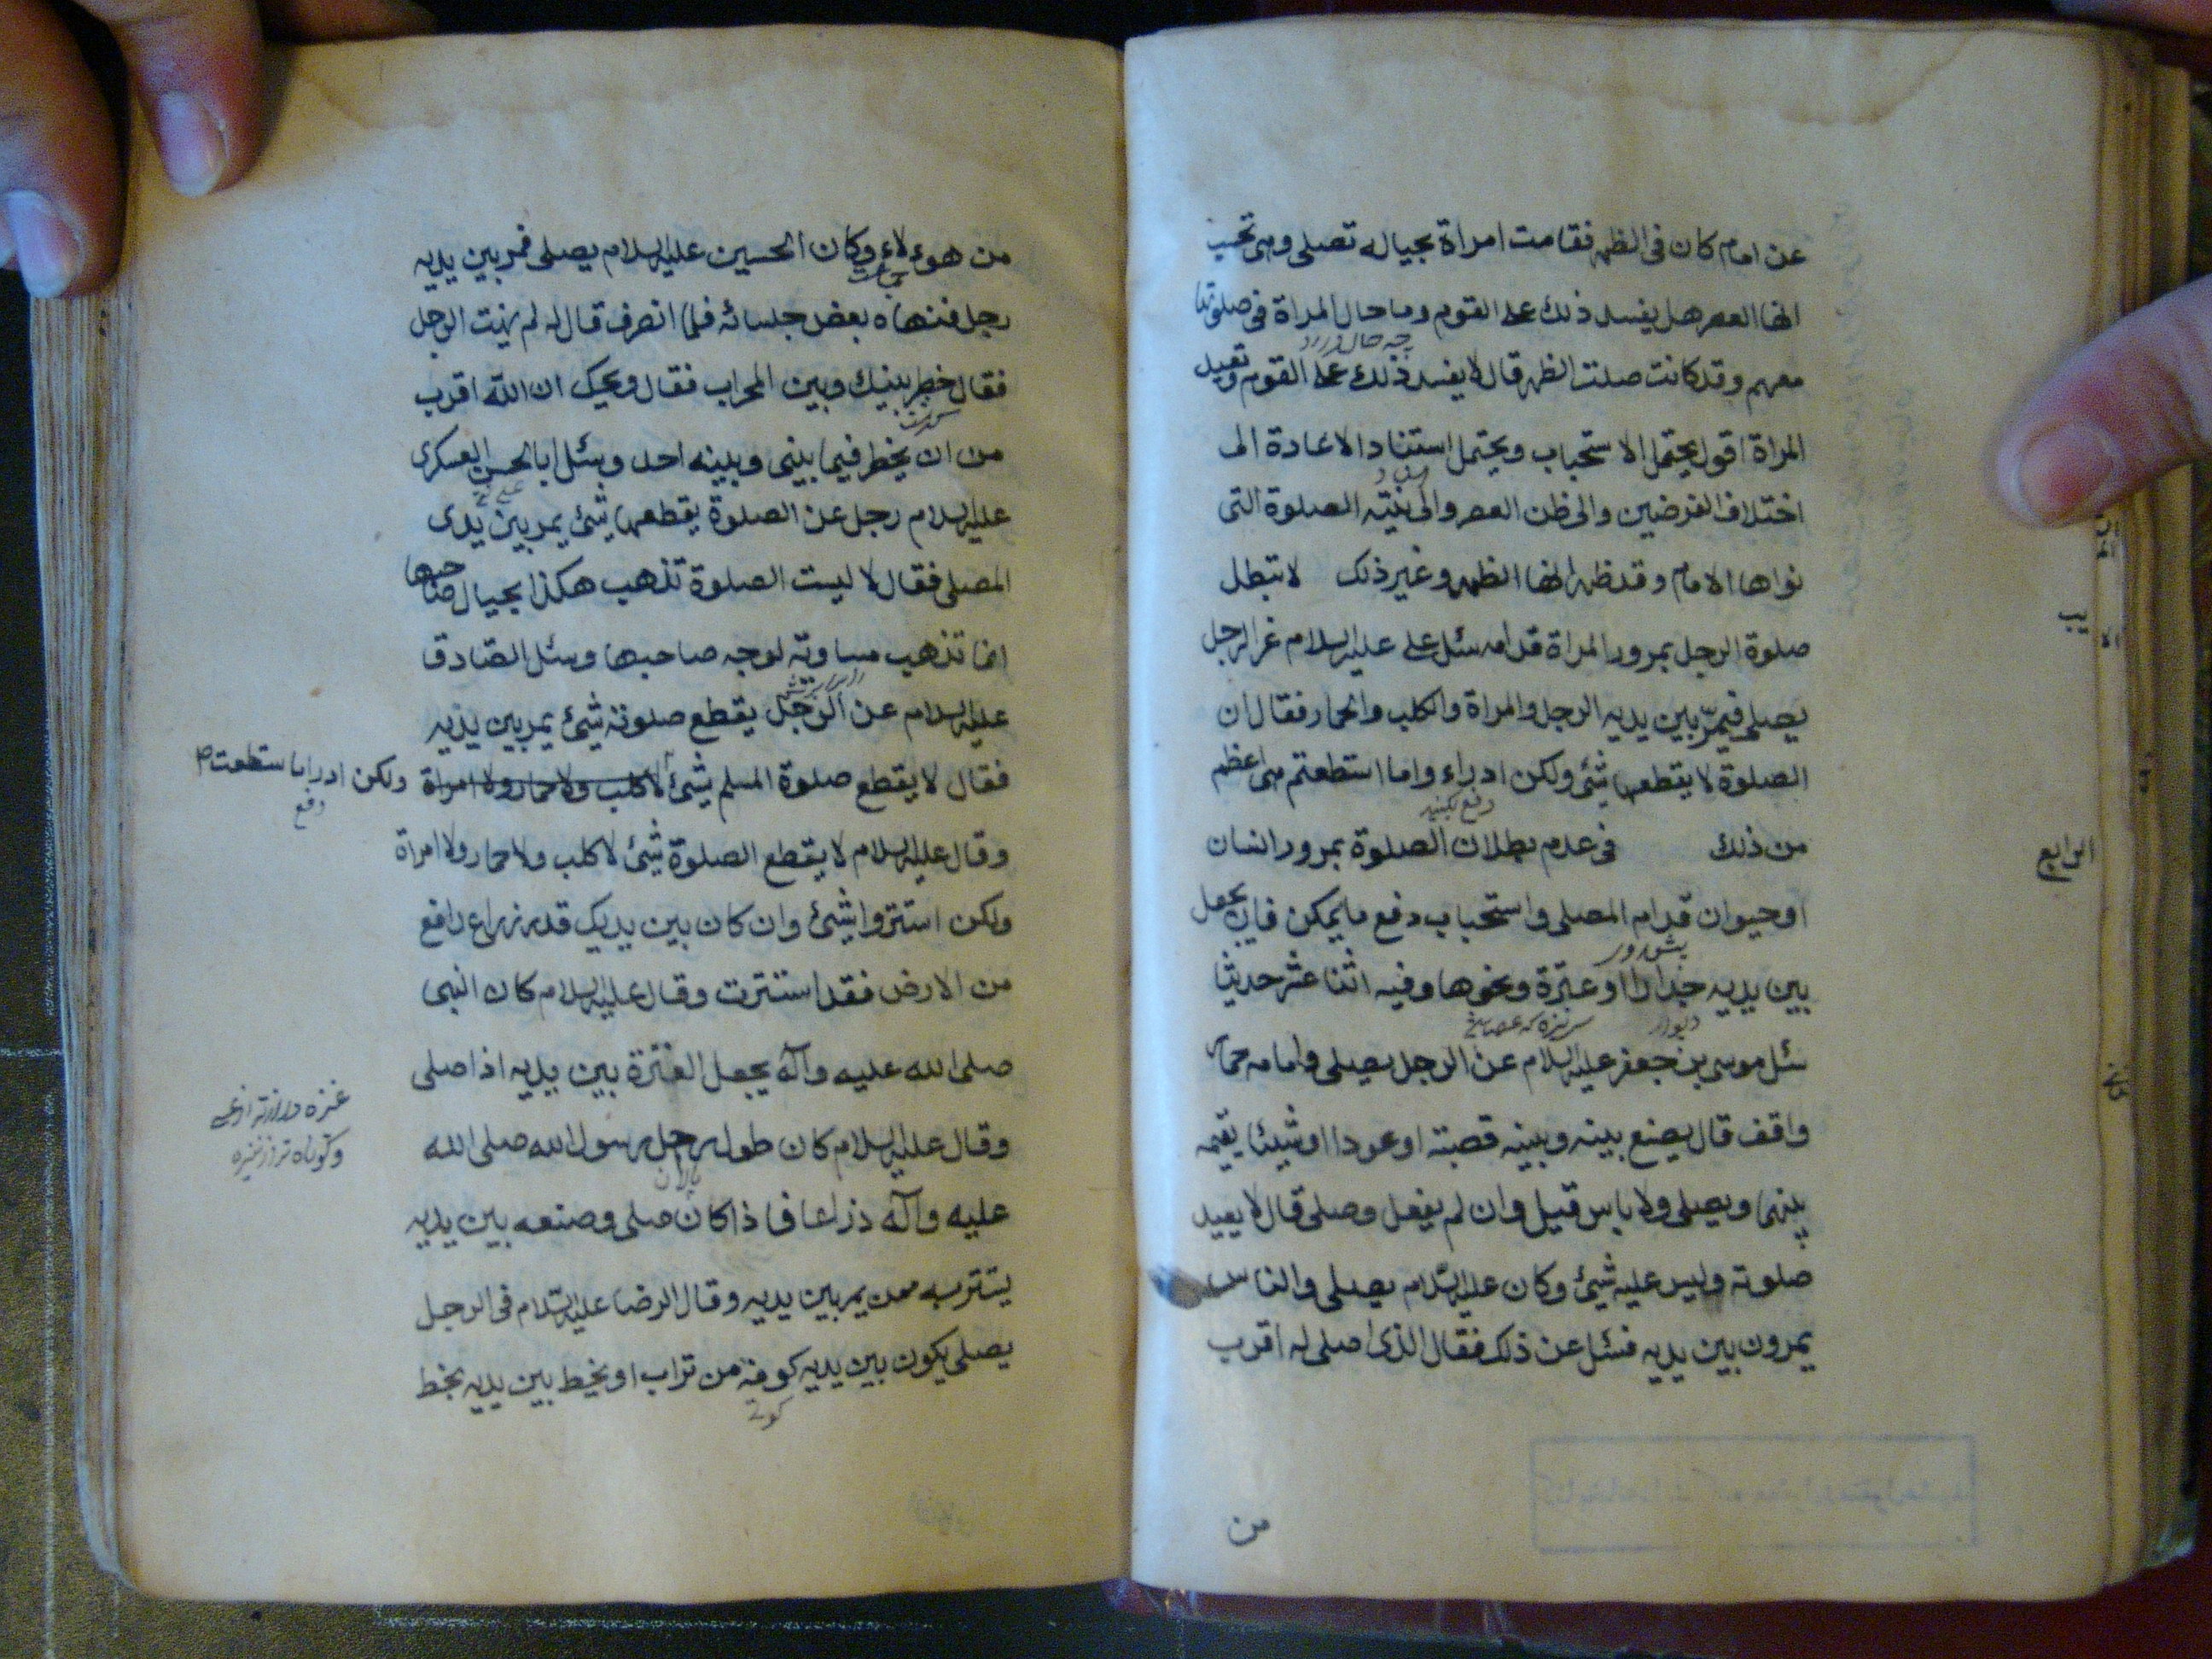 عن امام كان فى الظهر فقامت امراة بحياله تصلى وهى تحسب
انها العصر هل يفسد ذلك على القوم وما حال المراة فى صلوتها
چه حال دارد
معهم وقد كانت صلت الظهر قال لا يفسد ذلك على القوم وتعيد
المراة اقول يحتمل الاستحباب ويحتمل استناد الاعادة الى
اختلاف الفرضين والى ظن العصر والى نيته الصلوة التى
نواها الامام وقد ظهر انها الظهر وغير ذلك لا تبطل
صلوة الرجل بمرور المراة قدامه سئل على عليه السلام عن الرجل
يصلى فيمرّ بين يديه الرجل والمراة والكلب والحمار فقال ان
الصلوة لا يقطعها شئ ولكن ادراء واما استطعتم هى اعظم
دفع بكنيد
الرابع
من ذلك فى عدم بطلان الصلوة بمرور انسان
او حيوان قدام المصلى واستحباب دفع ما يمكن فان يجعل
پيش رو
بين يديه جدارا او عنزة ونحوها وفيه اثنا عشر حديثا
ديوار
سئل موسى بن جعفر عليه السلام عن الرجل يصلى وامامه حمار
واقف قال يصنع بينه وبينه قصبته او عودا او شيئا يقيمه
بينهما ويصلى ولا باس قيل وان لم يفعل وصلى قال لا يعيد
صلوته وليس عليه شيئ وكان عليه السّلام يصلى والناس
يمرون بين يديه فسئل عن ذلك فقال الذى اصلى له اقرب
من
من هوءلاء وكان الحسين عليه السلام يصلى فمر بين يديه
رجل فنهاه بعض جلسائه فلما انصرف قال له لم نهيت الرجل
فقال خطر بينك وبين المحراب فقال ويحك ان الله اقرب
من ان يخطر فيما بينى وبينه احد وسئل ابا الحسن العسكرى
عليه السلام رجل عن الصلوة يقطعها شئ يمر بين يدى
المصلى فقال لا ليست الصلوة تذهب هكذا بحيال صاحبها
انما تذهب مساوته لوجه صاحبها وسئل الصّادق
عليه السلام عن الرّجل يقطع صلوته شيئ يمر بين يديه
فقال لا يقطع صلوة المسلم شيئ لا كلب ولا حمار ولا امراة
ولكن ادراءا ستطعت
دفع
وقال عليه السلام لا يقطع الصلوة شيئ لا كلب ولا حمار ولا امراة
ولكن استتروا بشيئ وان كان بين يديك قدر ذراع رافع
من الارض فقد استترت وقال عليه السلام كان النبى
صلى الله عليه وآله يجعل العنزة بين يديه اذا صلى
وقال عليه السلام كان طول رحل رسول الله صلى الله
پالان
عليه وآله ذراعا فاذا كان صلى وضعه بين يديه
يستتر به ممن يمر بين يديه وقال الرضا عليه السّلام فى الرجل
يصلى يكون بين يديه كومة من تراب او يخيط بين يديه بخط